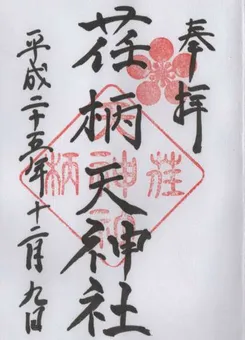 奉拝
荏柄天神社
平成二十五年十二月九日
荏柄天神社